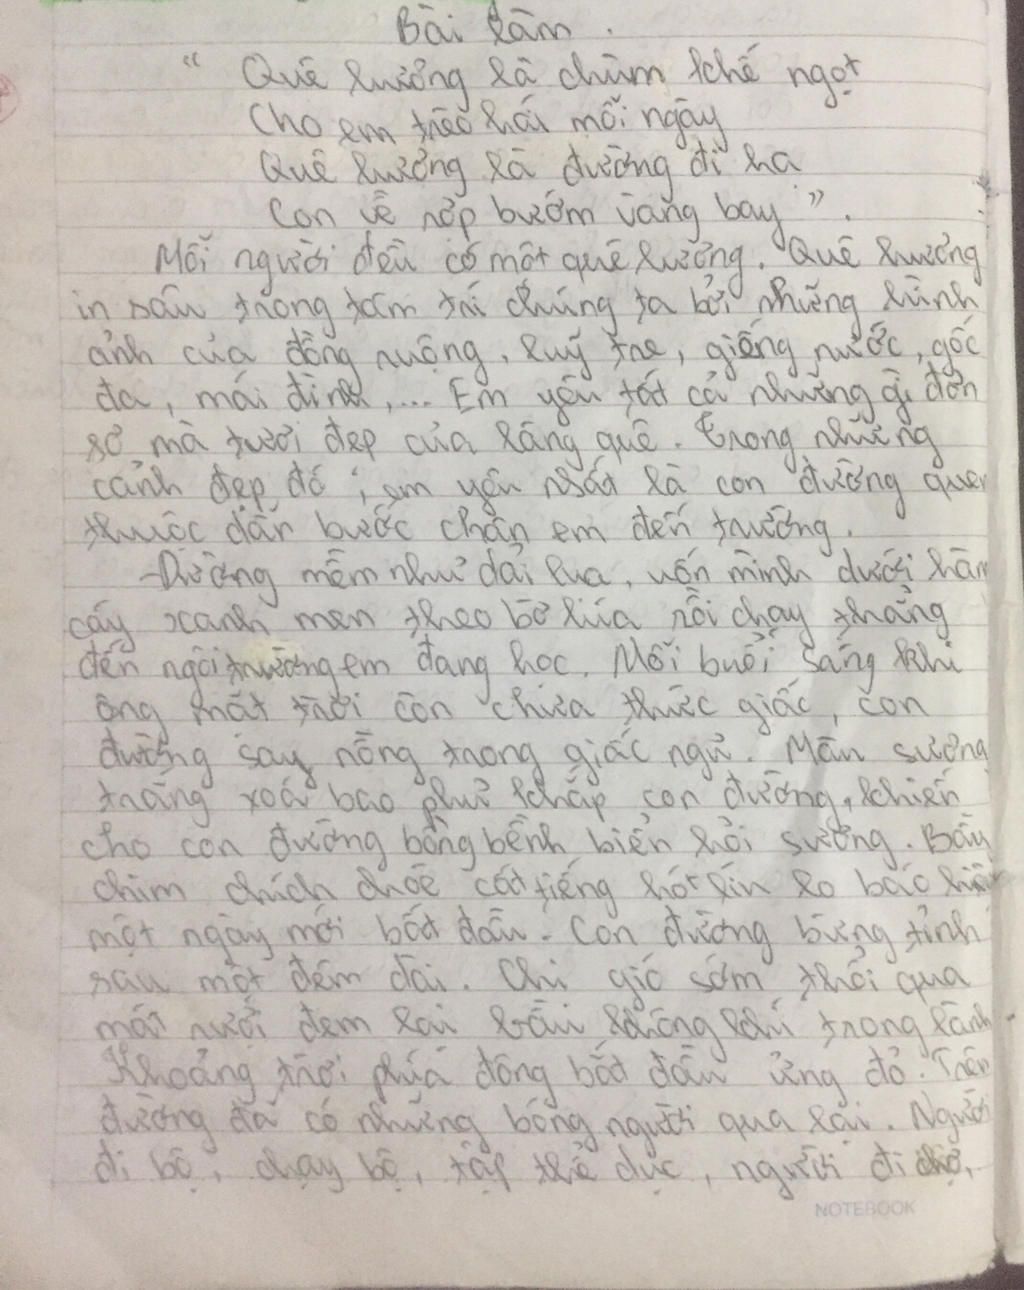 Bài làm.
" Quê hương là chùm khế ngọt
Cho em trèo hái mỗi ngày
Quê hương là đường đi ha
Con về rợp bướm vàng bay ".
Mỗi người đều có một quê hương. Quê hương
in sâu trong tâm trí chúng ta bởi những hình
ảnh của đồng ruộng, luỹ tre, giếng nước, gốc
đa, mái đình,... Em yêu tất cả những gì đơn
sơ mà tươi đẹp của làng quê. Trong những
cảnh đẹp đó, em yêu nhất là con đường quen
thuộc dẫn bước chân em đến trường.
Đường mềm như dải lụa, uốn mình dưới hàng
cây xanh men theo bờ lúa rồi chạy thẳng
đến ngôi trường em đang học. Mỗi buổi sáng khi
ông mặt trời còn chưa thức giấc, con
đường say nồng trong giấc ngủ. Màn sương
trắng xoá bao phủ khắp con đường, khiến
cho con đường bồng bềnh biển hơi sương. Bầy
chim chích choè cất tiếng hót lín lo báo hiệu
một ngày mới bắt đầu. Con đường bừng tỉnh
sau một đêm dài. Chị gió sớm thổi qua
mát rượi đem lại bầu không khí trong lành
Khoảng trời phía đông bắt đầu ửng đỏ. Trên
đường đã có những bóng người qua lại. Người
đi bộ, chạy bộ, tập thể dục, người đi chợ,
NOTEBOOK